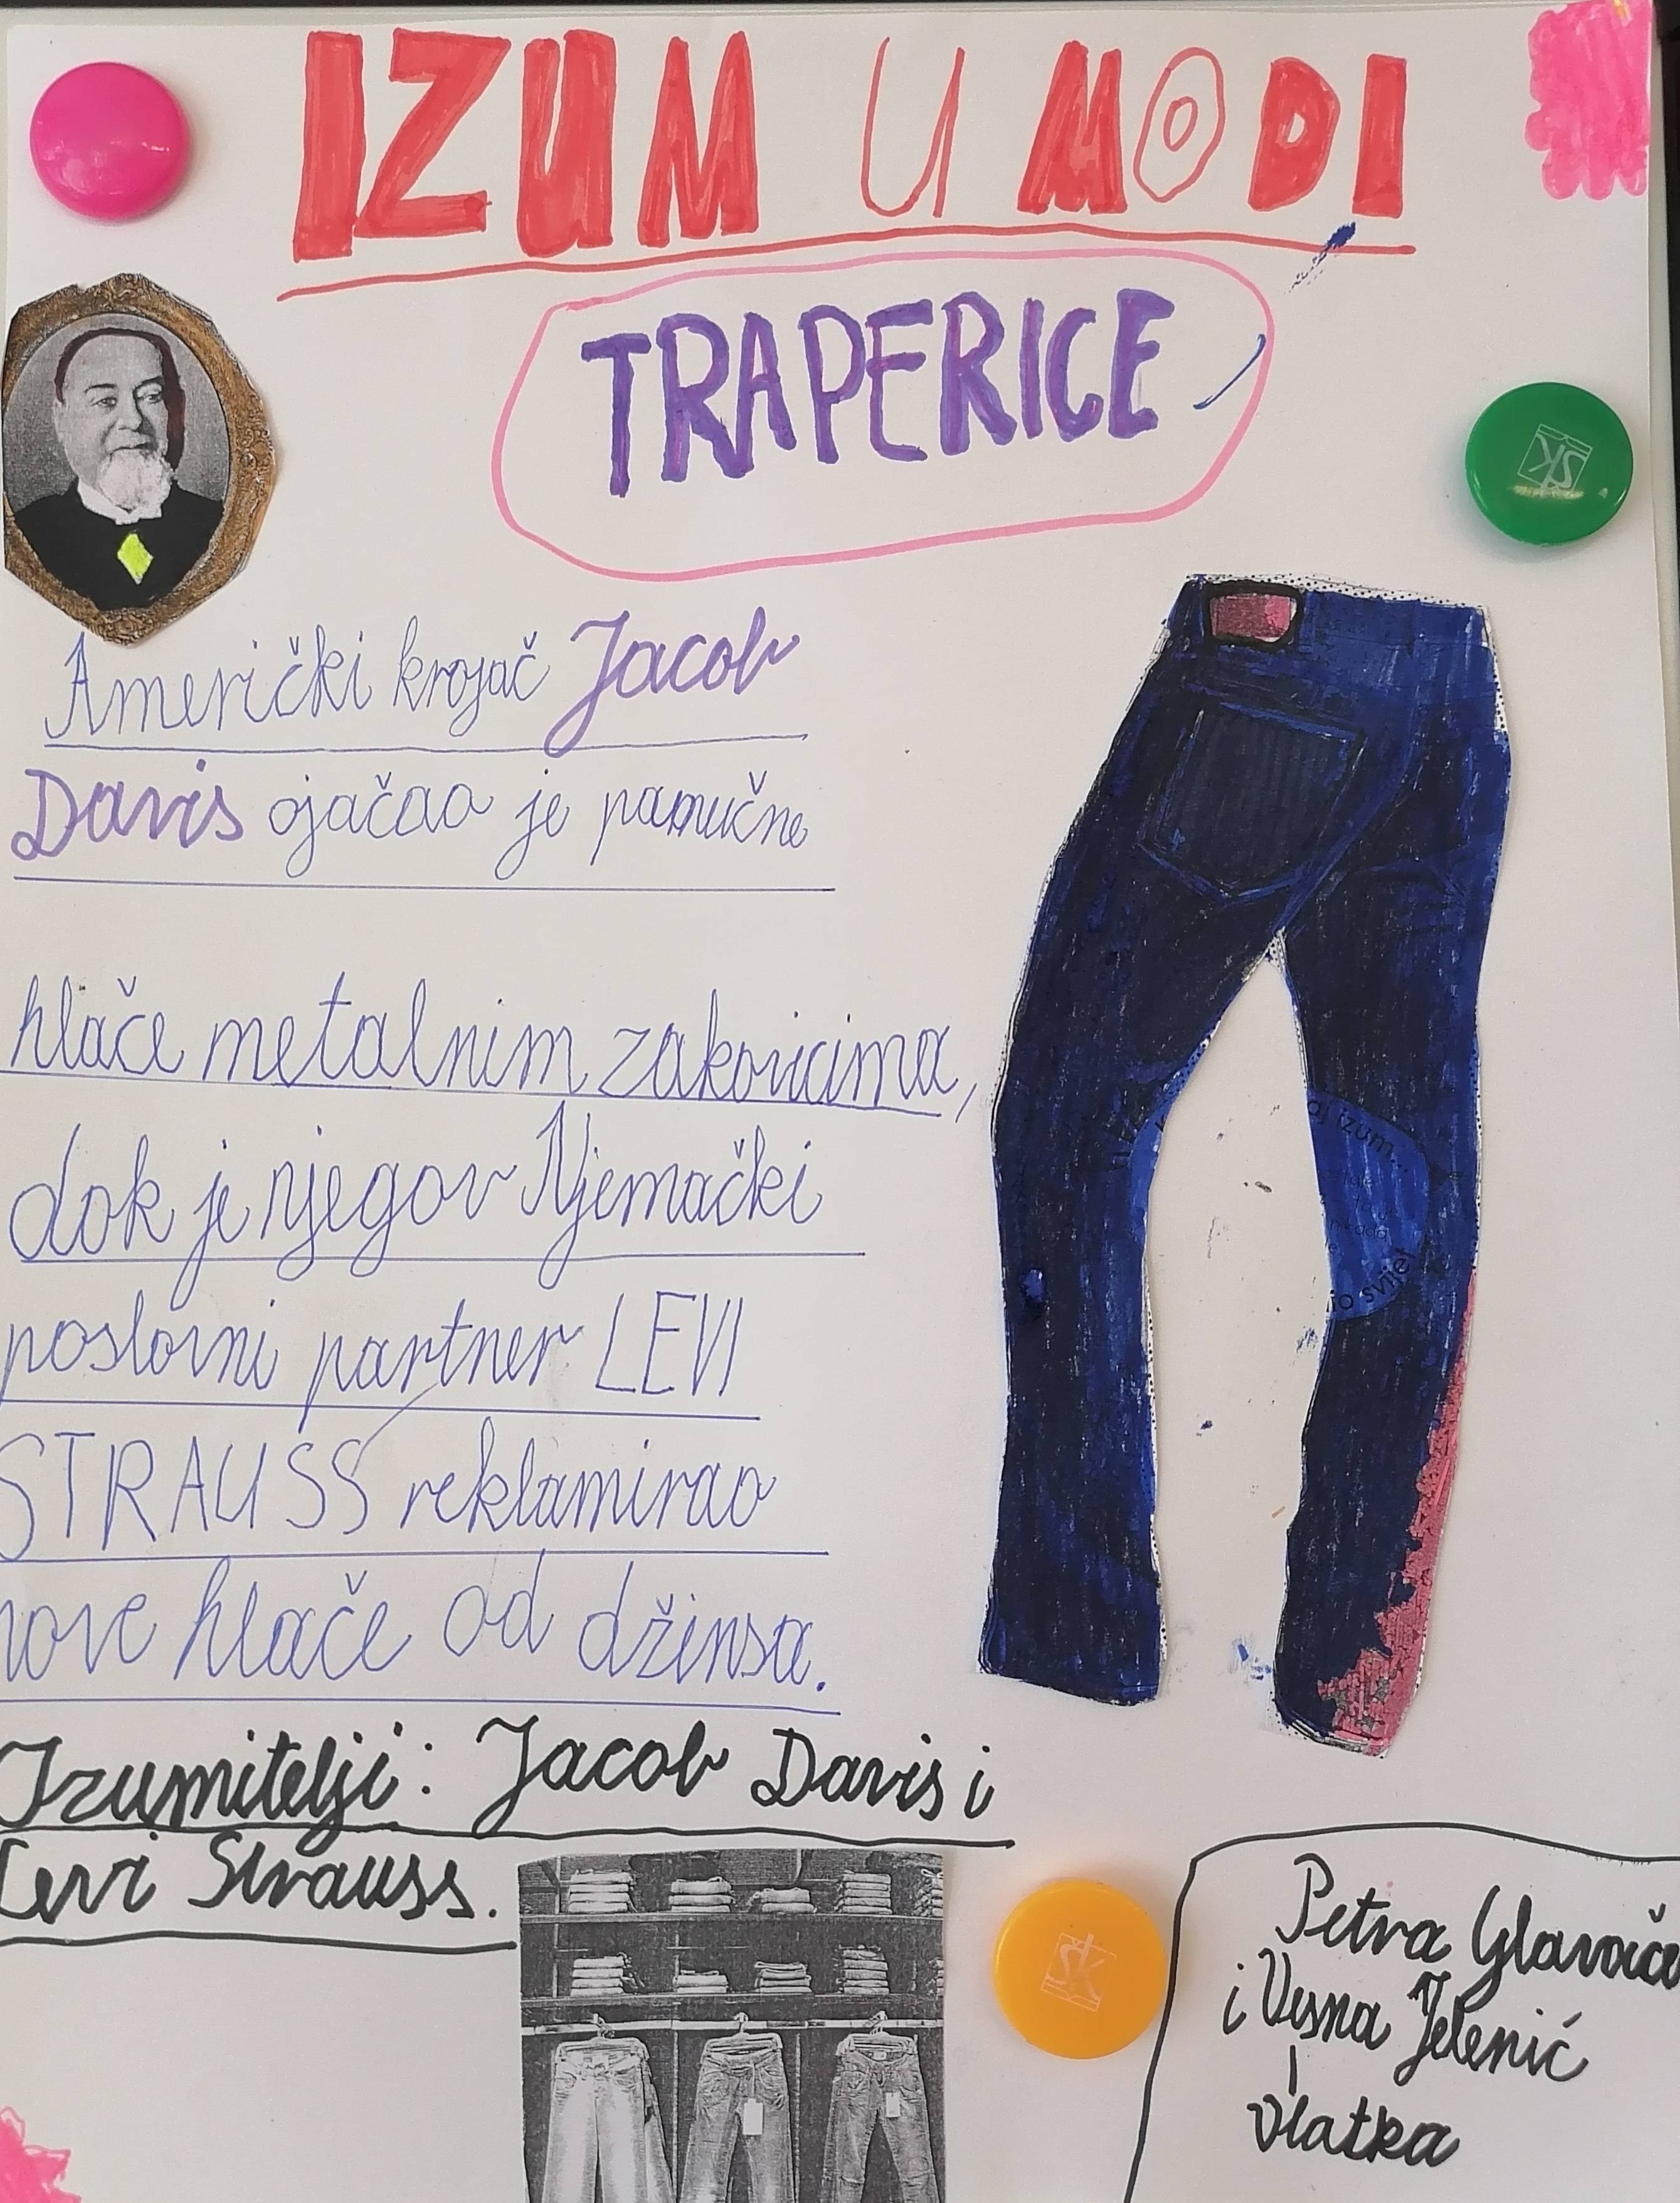 IZUM U MODI
TRAPERICE
Američki krojač Jacob
Davis ojačao je pamučne
hlače metalnim zakovicima,
dok je njegov Njemački
poslovni partner LEVI
STRAUSS reklamirao
nove hlače od džinsa.
Izumitelji: Jacob Davis i
Levi Strauss.
aj izum...
io svijet
SK
SK
Petra
i Vesna Jelenić
i
Vlatka